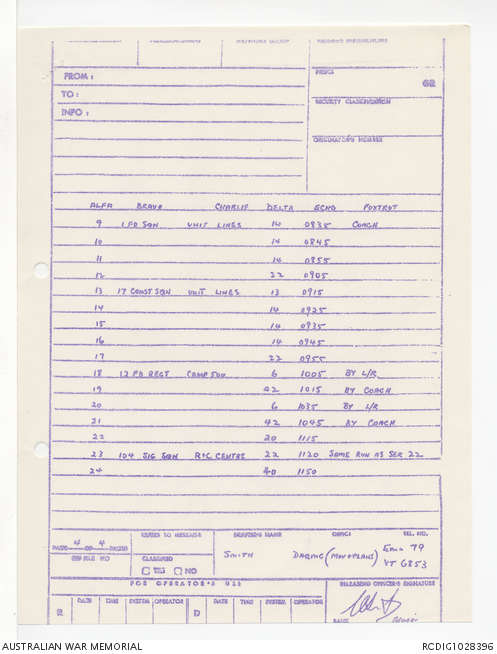 FROM :
PREFIX
GR
TO :
SECURITY CLASSIFICATION
INFO :
ORIGINATOR'S NUMBER
ALFA BRAVO CHARLIE DELTA ECHO FOXTROT
9 1 FD SQN UNIT LINES 14 0835 COACH
10 14 0845
11 14 0855
12 22 0905
13 17 CONST SQN UNIT LINES 13 0915
14 14 0925
15 14 0935
16 14 0945
17 22 0955
18 12 FD REGT 6 1005 BY L/R
19 42 1015 BY COACH
20 6 1035 BY L/R
21 42 1045 BY COACH
22 20 1115
23 104 SIG SQN R&C CENTRE 22 1120 SAME RUN AS SER 22
24 40 1150
PAGE 4 OF 4 PAGES
REFERS TO MESSAGE
DRAFTER'S NAME
OFFICE
TEL. NO.
CLASSIFIED
YES NO
SMITH
DAQMG (MOV & PLANS)
79
VT 6853
FOR OPERATOR'S USE
RELEASING OFFICER'S SIGNATURE
R DATE TIME SYSTEM OPERATOR D DATE TIME SYSTEM OPERATOR
RANK
AUSTRALIAN WAR MEMORIAL
RCDIG1028396